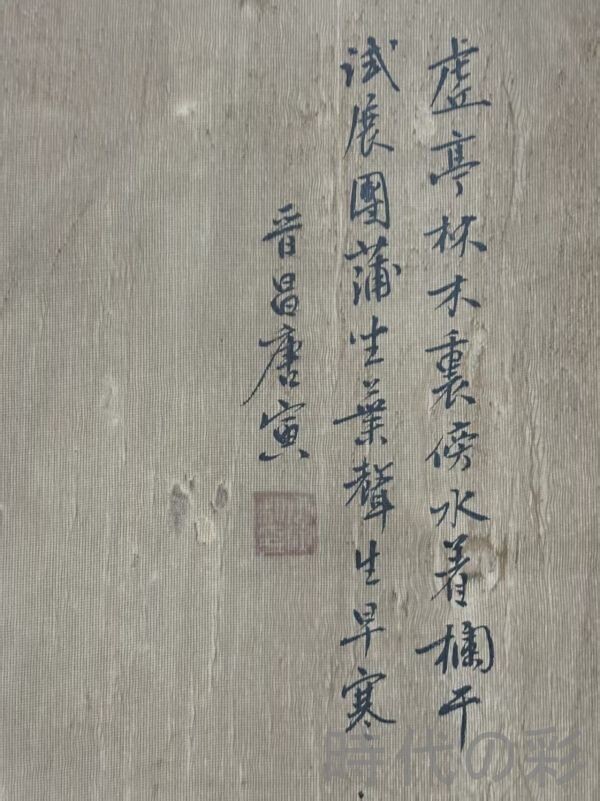 虛亭林木裏傍水着欄干
試展團蒲坐葉聲生早寒
晋昌唐寅
時代の彩